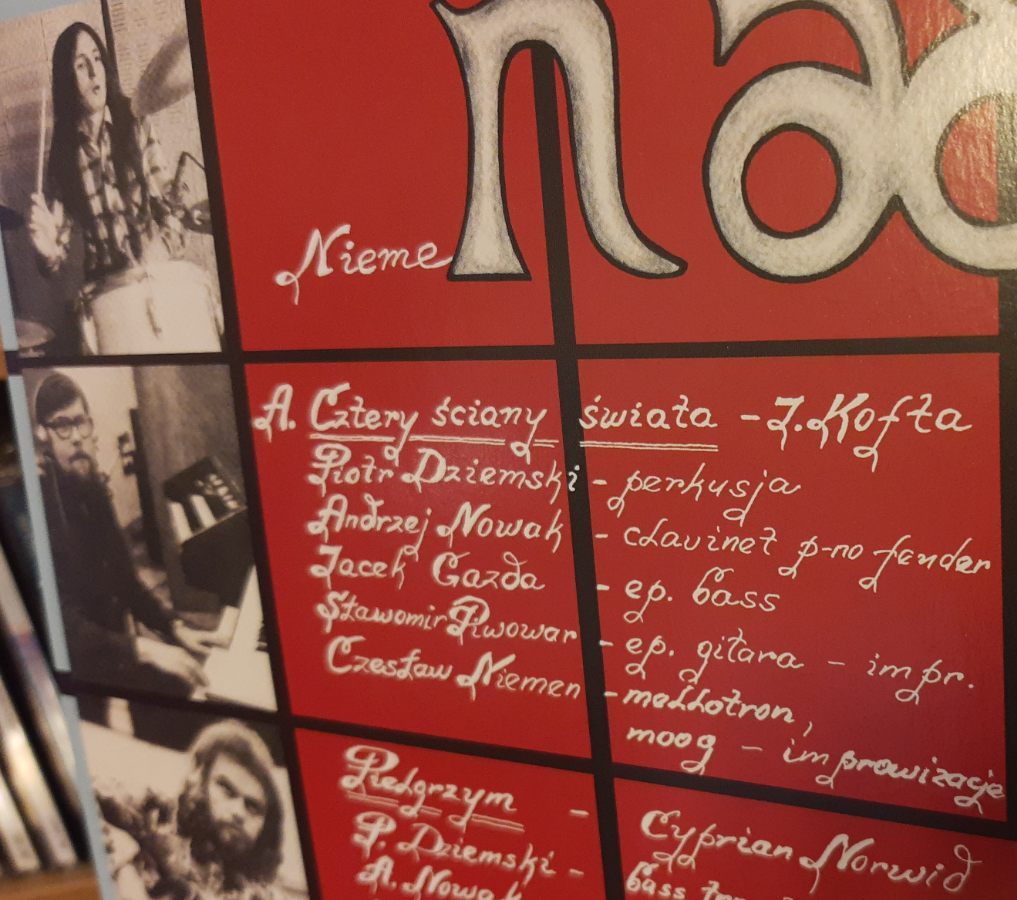 Nieme
na
A. Cztery ściany świata - J. Kofta
Piotr Dziemski - perkusja
Andrzej Nowak - clavinet p-no fender
Jacek Gazda - ep. bass
Sławomir Piwowar - ep. gitara - impr.
Czesław Niemen - mellotron,
moog - improwizacje
Pielgrzym - Cyprian Norwid
P. Dziemski - bass
A. Nowak